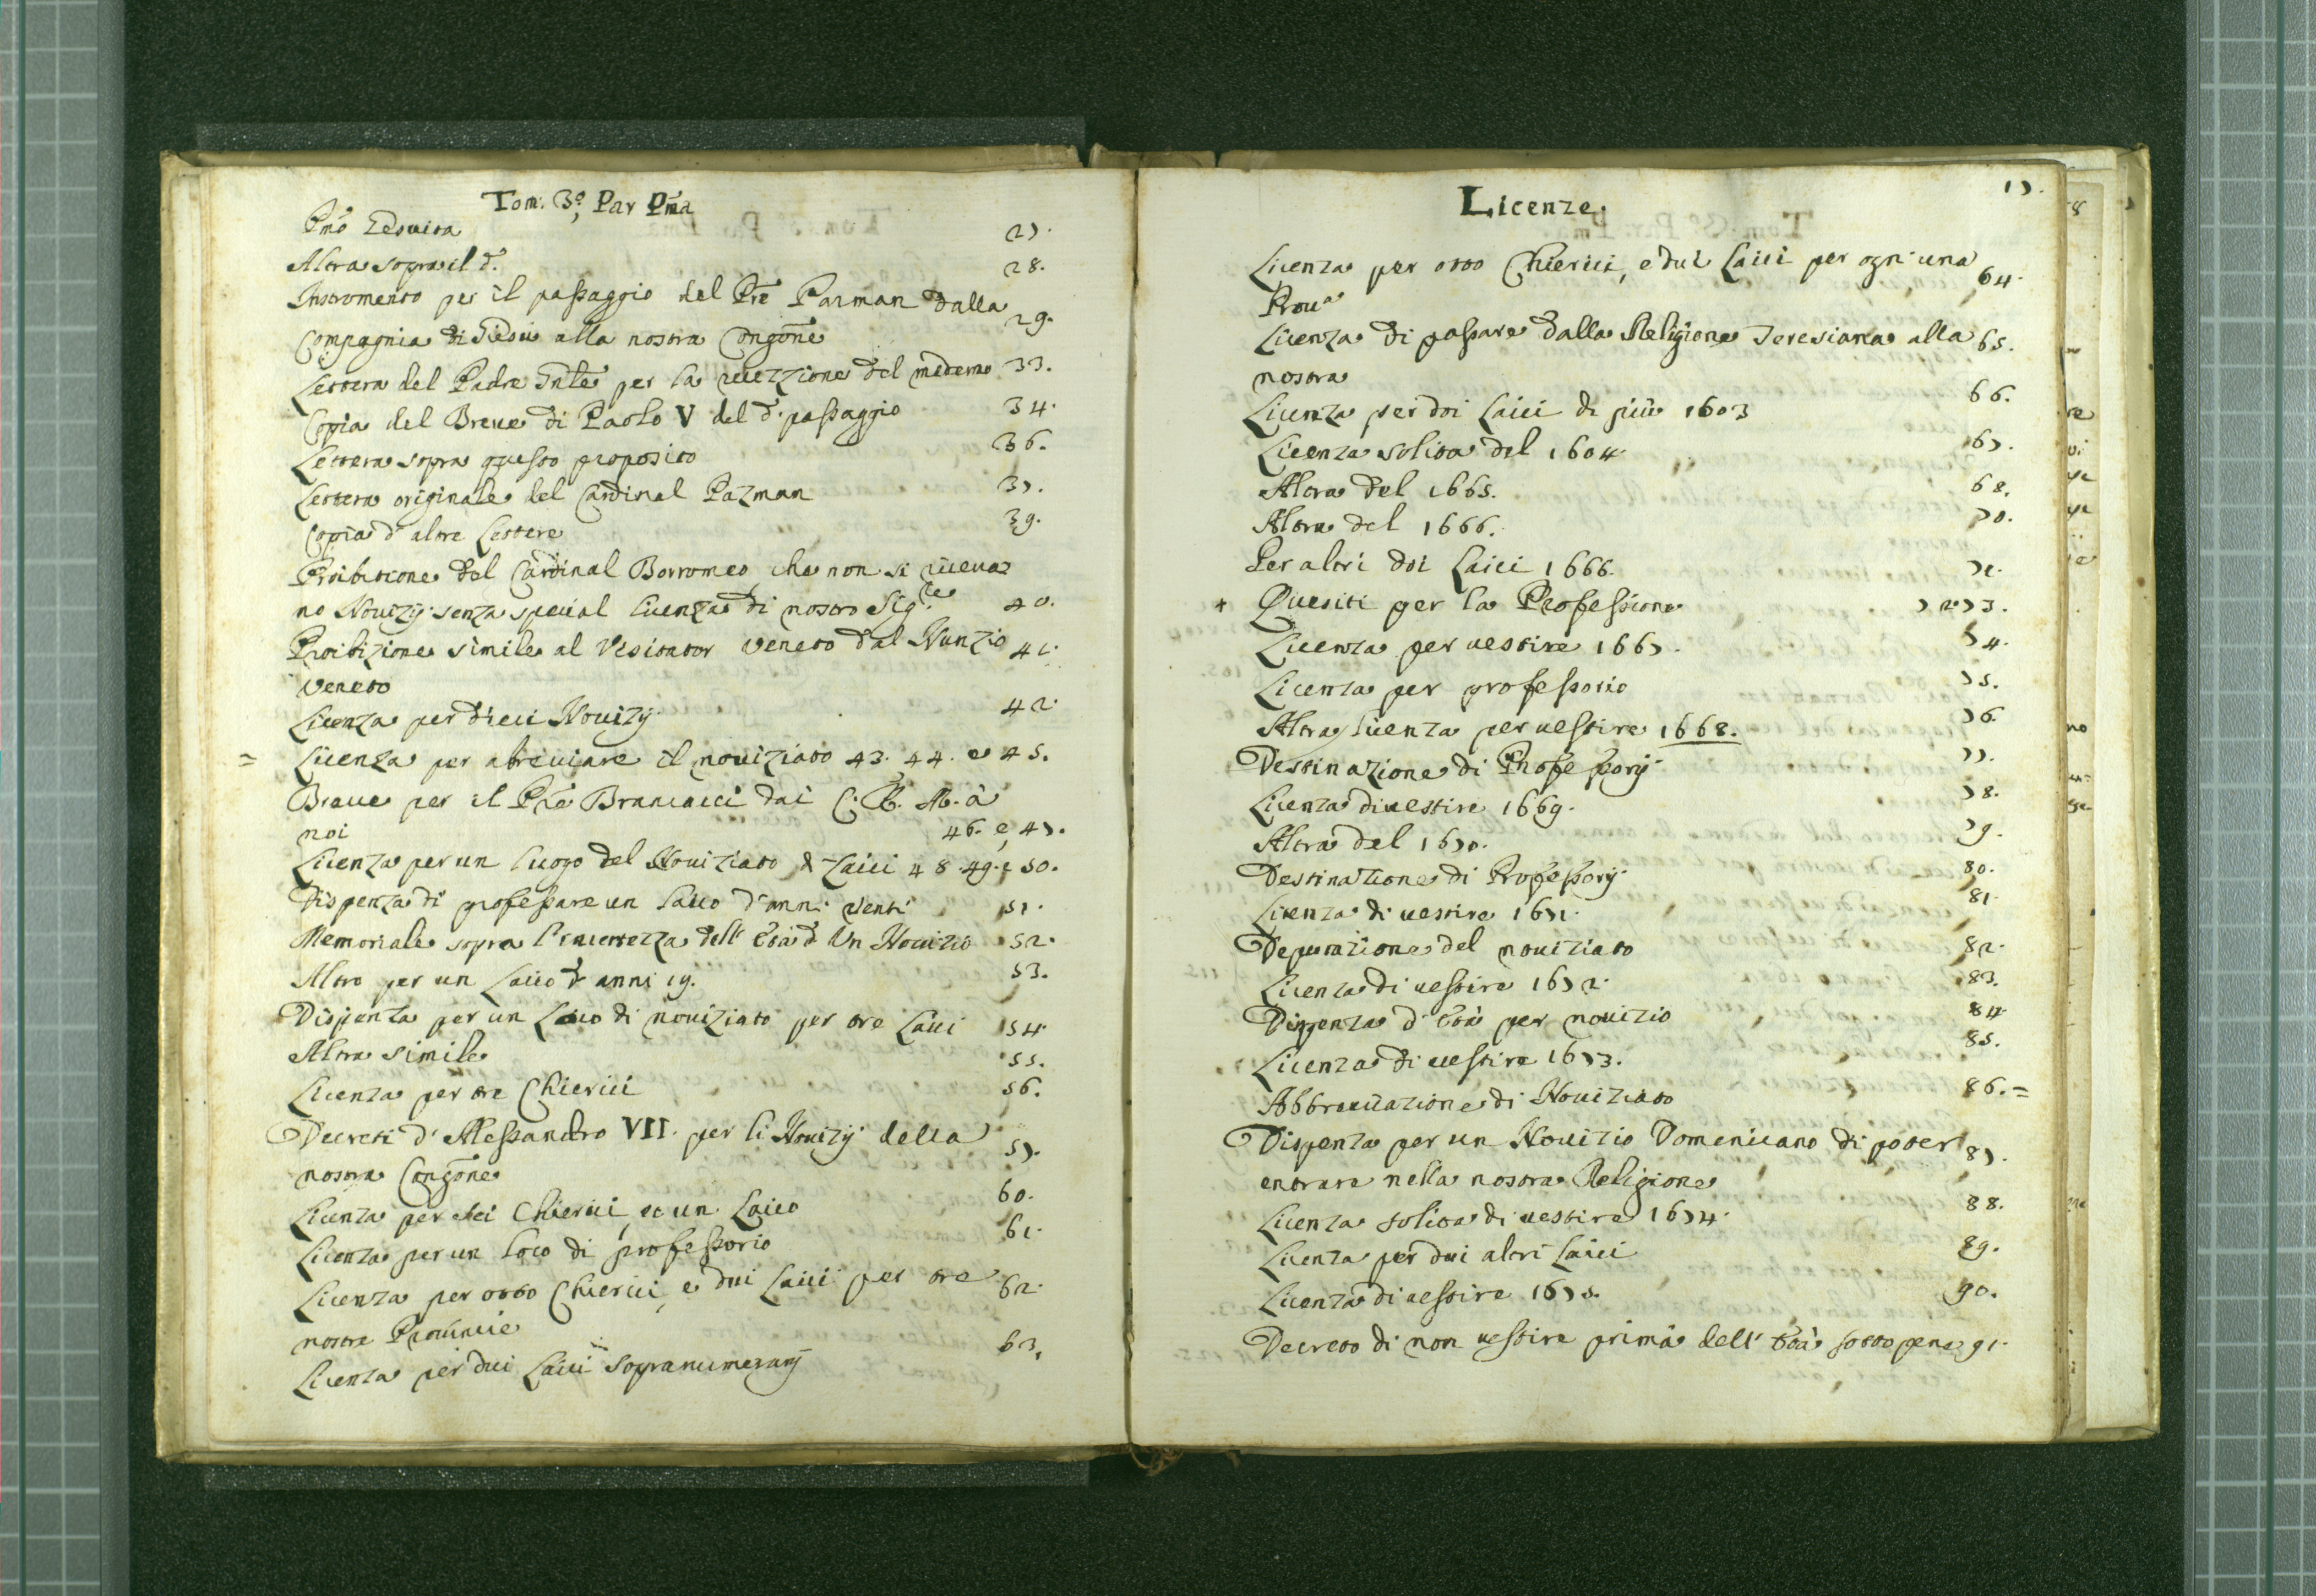 Tom: 3º, Par Pma
Pmo Gesuita 27.
Altra sopra il d. 28.
Instromento per il passaggio del Pre Pazman dalla
Compagnia di Giesu alla nostra Congone 29.
Lettera del Padre Gnle per la recezzione del medemo 33.
Copia del Breue di Paolo V del d. passaggio 34.
Lettera sopra questo proposito 36.
Lettera originale del Cardinal Pazman 37.
Copia d'altre Lettere 39.
Proibitione del Cardinal Borromeo che non si riceua=
no Nouizij senza special licenza di nostro Sig.re 40.
Proibizione simile al Visitator veneto dal Nunzio 41.
veneto
Licenza per dieci Nouizij 42.
= Licenza per abreuiare il nouiziato 43. 44. e 45.
Breue per il Pre Brancacci dai C. R. M. à
noi 46. e 47.
Licenza per un luogo del Nouiziato di Laici 48. 49. e 50.
Dispenza di professare un Laico d'anni venti 51.
Memoriale sopra l'incertezza dell' Età d' Un Nouizio 52.
Altro per un Laico d' anni 19. 53.
Dispenza per un Loco di nouiziato per tre Laici 54.
Altra simile 55.
Licenza per tre Chierici 56.
Decreti d' Alessandro VII. per li Nouizij della
nostra Congone 57.
Licenza per sei Chierici, et un Laico 60.
Licenza per un loco di professorio 61.
Licenza per otto Chierici, e dui Laici per tre 62.
nostre Prouincie
Licenza per dui Laici sopranumerarij 63.
Licenze. 17.
Licenza per otto Chierici, e dui Laici per ogn' una 64.
Proua
Licenza di passare dalla Religione Teresiana alla 65.
nostra
Licenza per doi Laici di più 1603 66.
Licenza solita del 1604. 67.
Altra del 1665. 68.
Altra del 1666. 70.
Per altri doi Laici 1666. 71.
+ Quesiti per la Professione 72. 73.
Licenza per uestire 1667. 74.
Licenza per professorio 75.
Altra licenza per uestire 1668. 76.
Destinazione di Professorij 77.
Licenza di uestire 1669. 78.
Altra del 1670. 79.
Destinatione di Professorij 80.
Licenza di uestire 1671. 81.
Deputazione del nouiziato 82.
Licenza di uestire 1672. 83.
Dispenza d' Età per nouizio 84.
Licenza di uestire 1673. 85.
Abbreuiazione di Nouiziato 86. =
Dispenza per un Nouizio Domenicano di poter 87.
entrare nella nostra Religione
Licenza solita di uestire 1674. 88.
Licenza per dui altri Laici 89.
Licenza di uestire 1675. 90.
Decreto di non uestire prima dell' Età sotto pene 91.